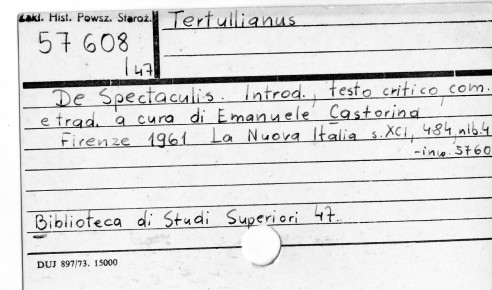 Zakł. Hist. Powsz. Staroż.
Tertullianus
57 608
/47
De Spectaculis. Introd., testo critico, com.
e trad. a cura di Emanuele Castorina
Firenze 1961 La Nuova Italia s. XCI, 484, nlb. 4
-inw. 5760
Biblioteca di Studi Superiori 47.
DUJ 897/73. 15000